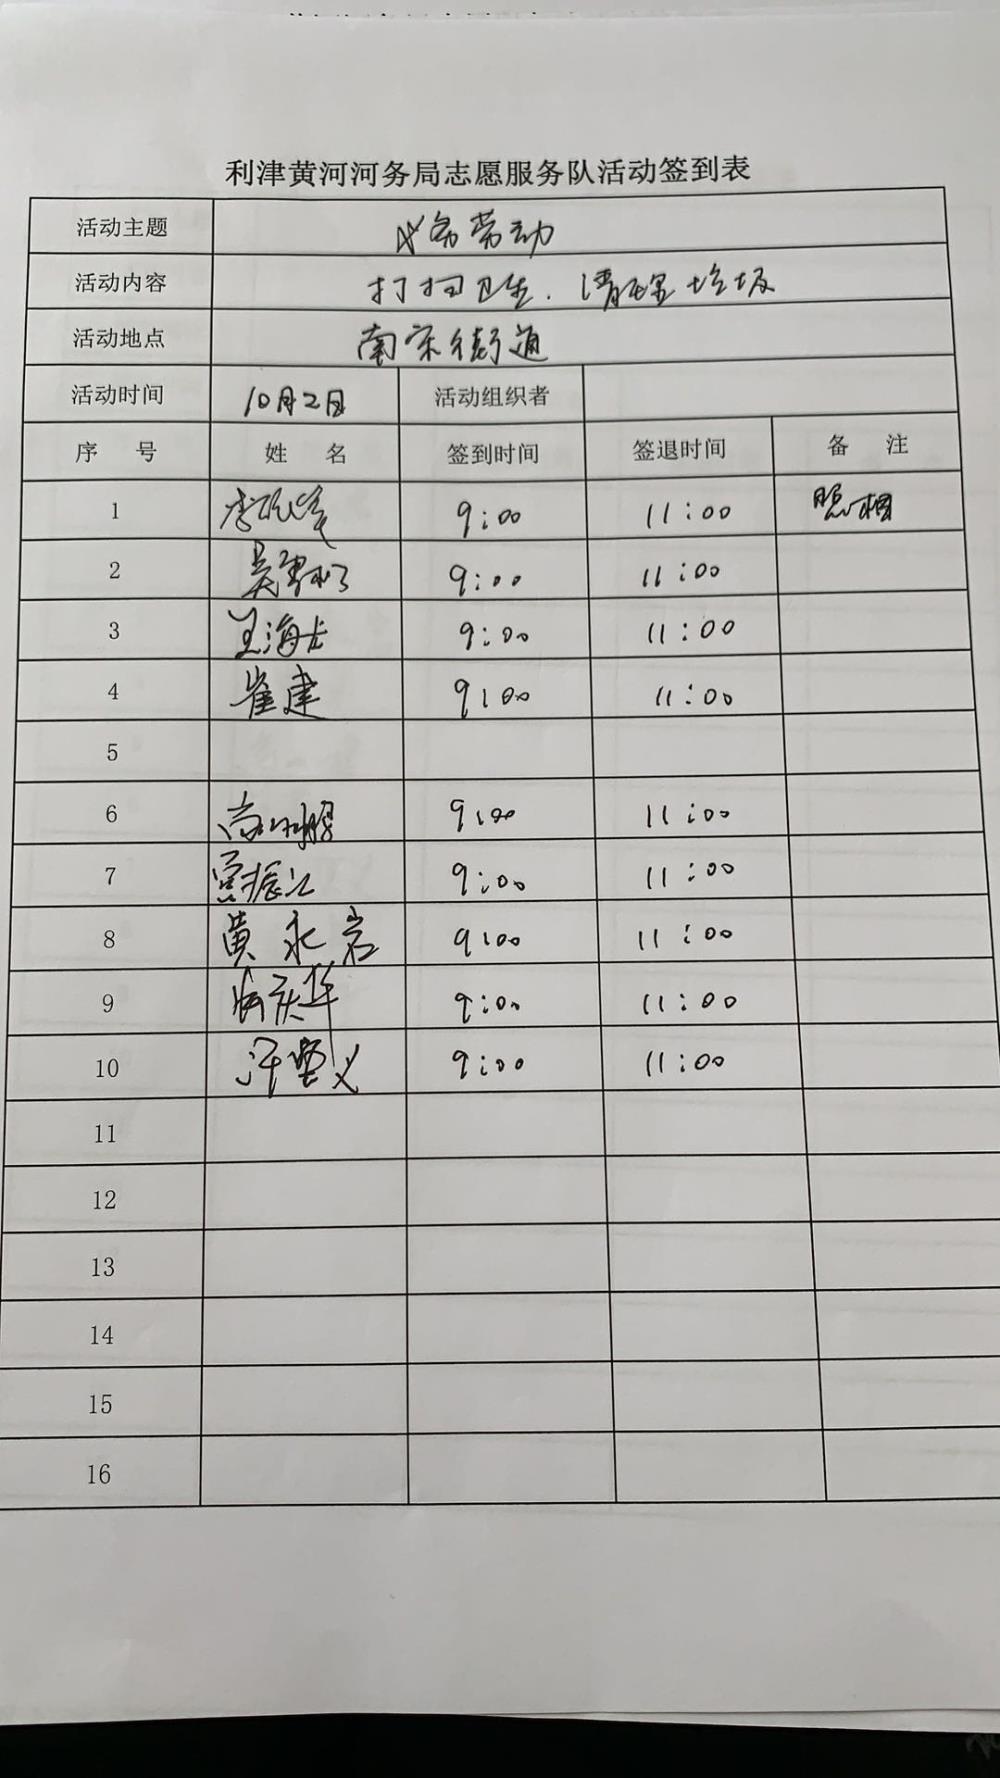 利津黄河河务局志愿服务队活动签到表
活动主题 义务劳动
活动内容 打扫卫生.清理垃圾
活动地点 南宋街道
活动时间 10月2日 活动组织者
序 号 姓 名 签到时间 签退时间 备 注
1 9:00 11:00 照相
2 9:00 11:00
3 王海 9:00 11:00
4 崔建 9:00 11:00
5
6 9:00 11:00
7 振江 9:00 11:00
8 黄永岩 9:00 11:00
9 庆华 9:00 11:00
10 9:00 11:00
11
12
13
14
15
16